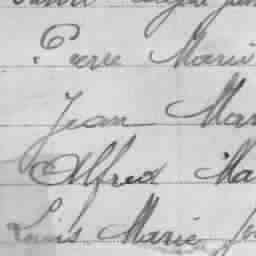 Pierre Marie
Jean Mar
Alfred Ma
Louis Marie